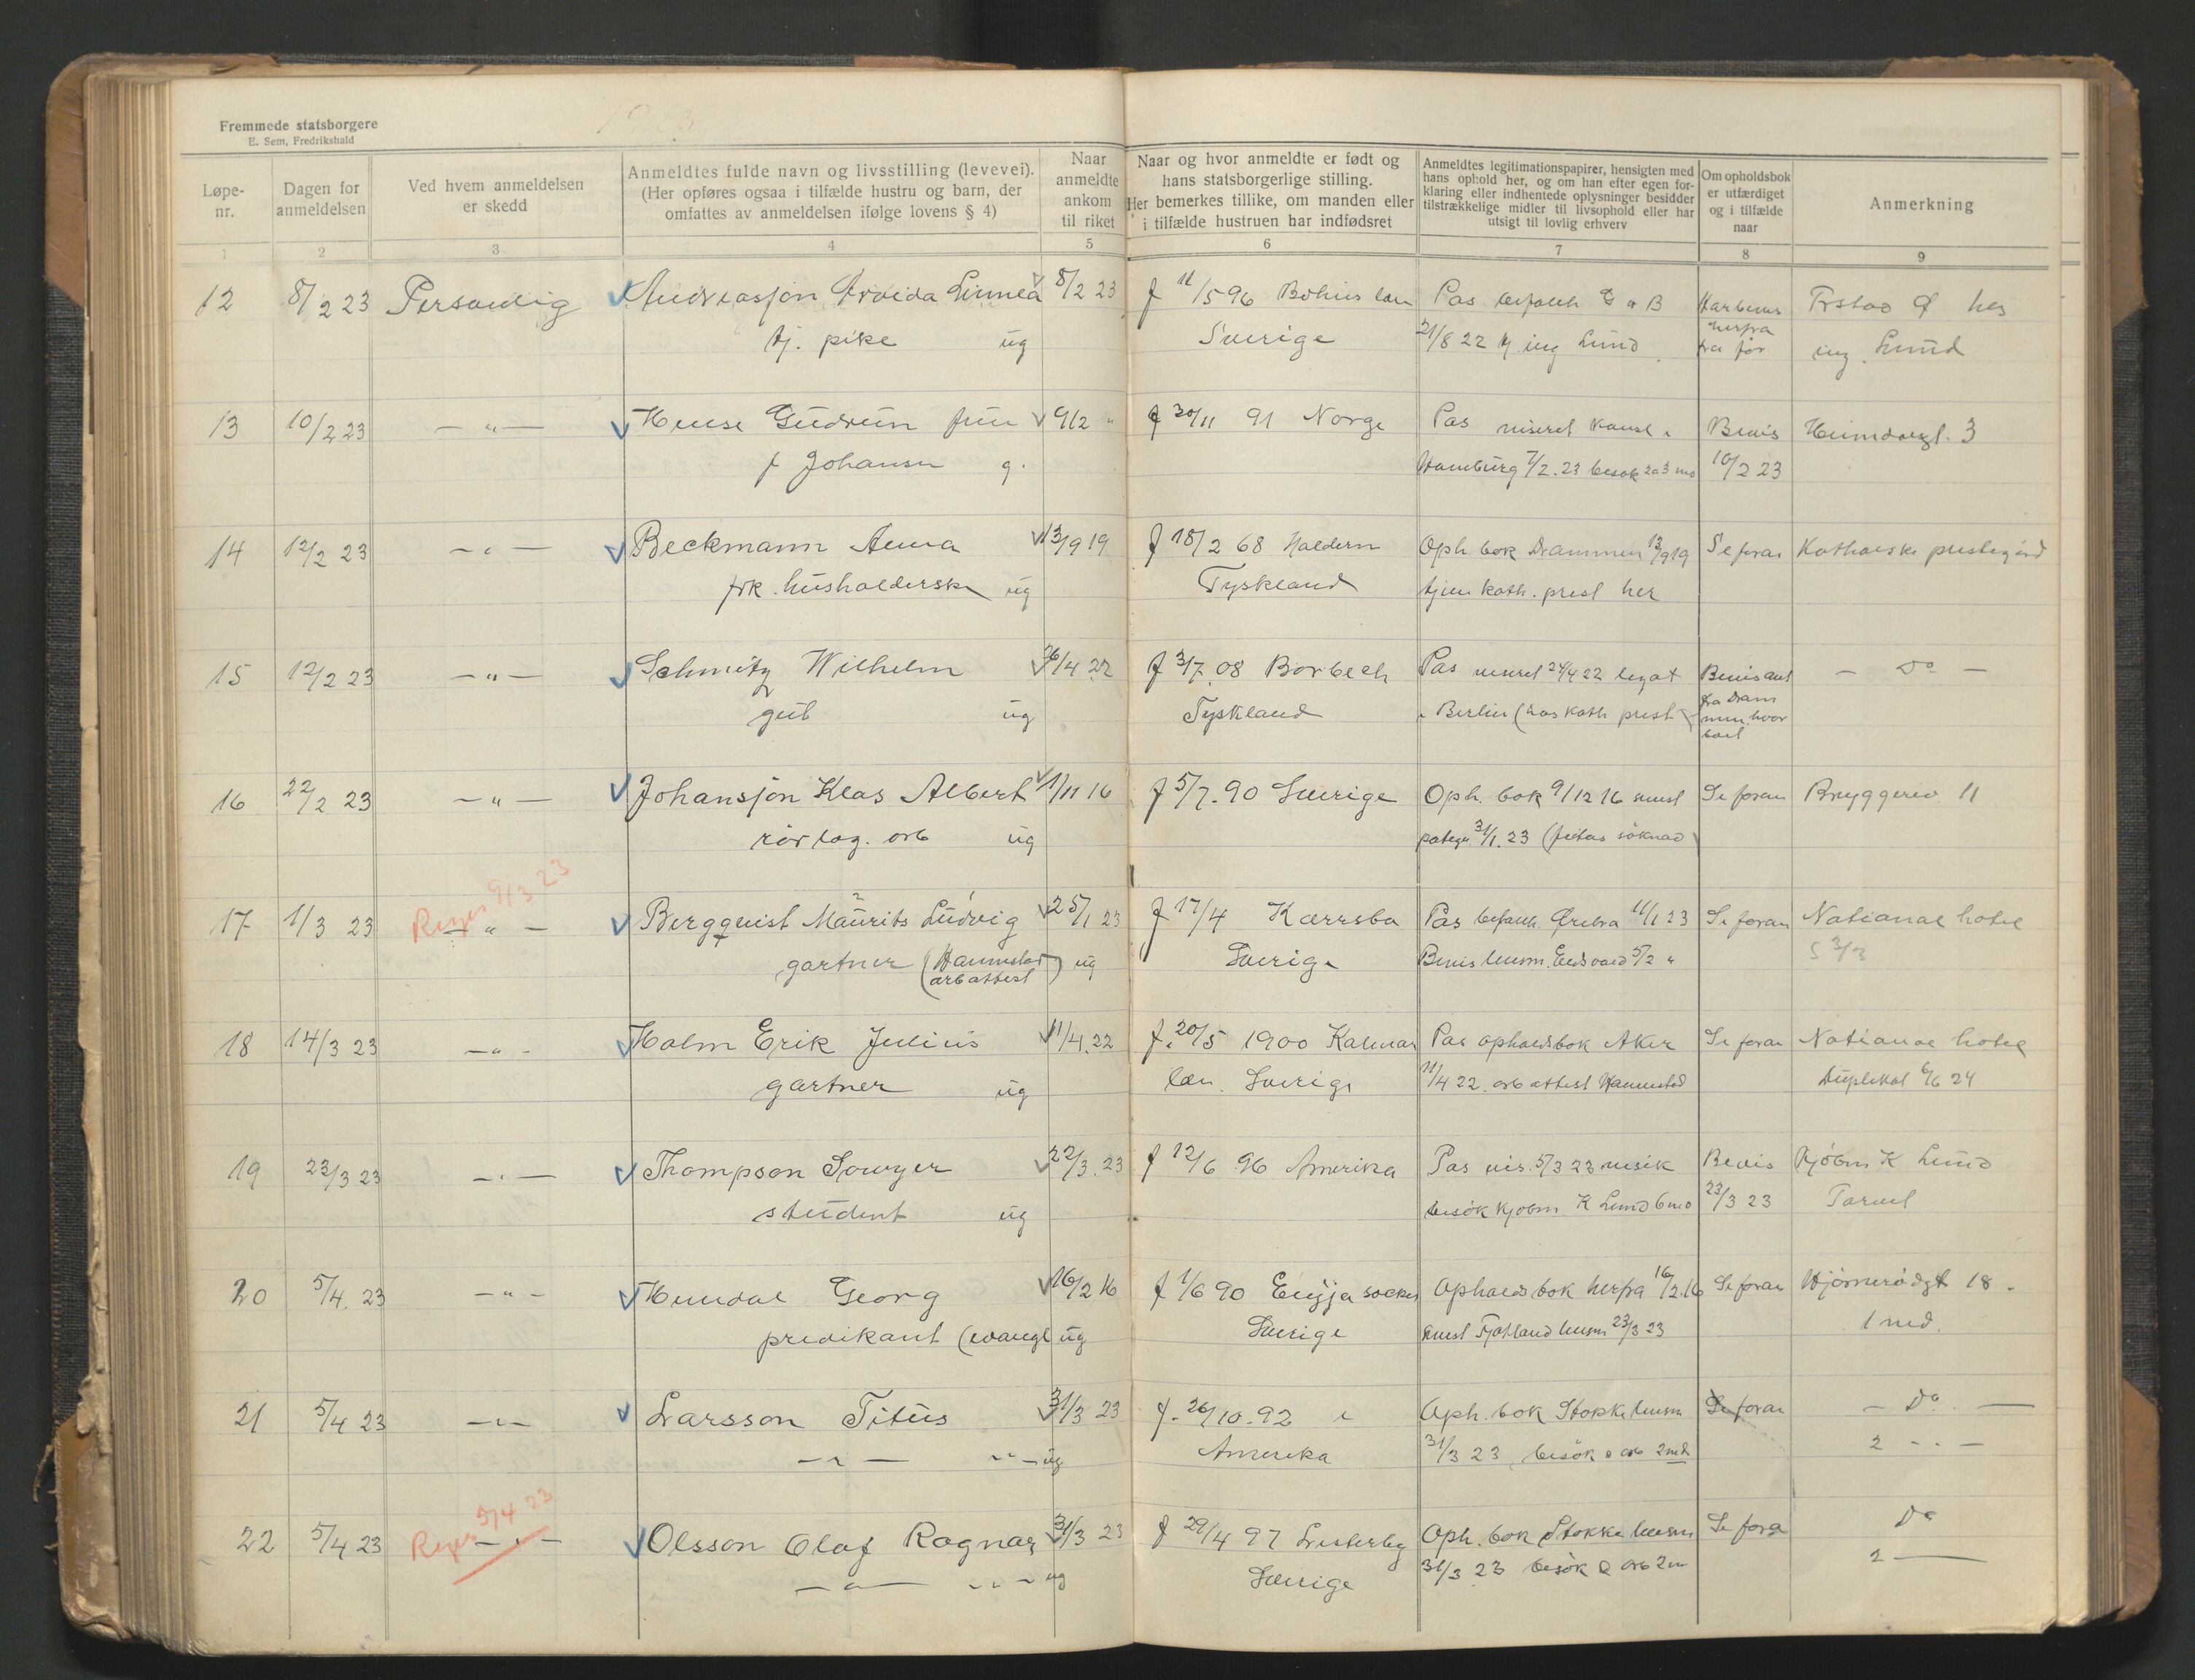 1923
Fremmede statsborgere
E. Sem, Fredrikshald
Løpe-
nr.
Dagen for
anmeldelsen
Ved hvem anmeldelsen
er skedd
Anmeldtes fulde navn og livsstilling (levevei).
(Her opføres ogsaa i tilfælde hustru og barn, der
omfattes av anmeldelsen ifølge lovens § 4)
Naar
anmeldte
ankom
til riket
Naar og hvor anmeldte er født og
hans statsborgerlige stilling.
Her bemerkes tillike, om manden eller
i tilfælde hustruen har indfødsret
Anmeldtes legitimationspapirer, hensigten med
hans ophold her, og om han efter egen for-
klaring eller indhentede oplysninger besidder
tilstrækkelige midler til livsophold eller har
utsigt til lovlig erhverv
Om opholdsbok
er utfærdiget
og i tilfælde
naar
Anmerkning
1 2 3 4 5 6 7 8 9
12 8/2 23 Personlig Andreasson Arvida Linnea 8/2 23 f 11/5 96 Bohus len Pas G o B hos
tj. pike ug Sverige 21/8 22 tj. ing Lund herfra fra før ing. Lund
13 10/2 23 — " — Gudrun frue 9/2 " f 30/11 91 Norge Pas viseret Bevis 3
f Johansen g. Hamburg 7/2. 23 besøk 2 a 3 10/2 23
14 12/2 23 — " — Beckmann Anna 13/9 19 f 18/2 68 Haldern Oph. bok Drammen 13/9 19 Se foran Katholske prestegård
frk. husholderske ug Tyskland tjen kath. prest her
15 12/2 23 — " — Schmitz Wilhelm 26/4 22 f 3/7 08 Borbeck Pas viseret 24/4 22 legat — Do —
gut ug Tyskland i Berlin (hos kath prest) fra Dram
men hvor
16 22/2 23 — " — Johansson Klas Albert 1/11 16 f 5/7. 90 Sverige Oph. bok 9/12 16 Se foran Bryggeriv. 11
rørlæg. arb ug 31/1. 23 søknad
17 1/3 23 Reyes 9/3 23 — " — Bergquist Maurits Ludvig 25/1 23 f 17/4 Pas Ørebro 11/1 23 Se foran National hotel
gartner arbattest ug Sverige Bevis lensm. Eidsvold 5/2 " 3/3
18 14/3 23 — " — Holm Erik Julius 11/4. 22 f. 20/5 1900 Kalmar Pas opholdsbok Aker Se foran National hotel
gartner ug len. Sverige 11/4 22. arb attest Duplikat 6/6 24
19 23/3 23 — " — Thompson Sawyer 22/3. 23 f 12/6 96 Amerika Pas vis. 5/3 23 Bevis Kjøbm K Lund
student ug besøk kjøbm. K Lund 6 mo 23/3 23 Torvet
20 5/4. 23 — " — Georg 16/2 16 f 1/6 90 socken Opholdsbok herfra 16/2. 16 Se foran 18.
predikant (evangl ug Sverige lensm 23/3 23 1 md.
21 5/4 23 — " — Larsson Titus 31/3 23 f. 26/10. 92 i Oph. bok Stokke lensm Se foran — Do —
— " — ug Amerika 31/3 23 besøk o arb 2 md 2 — " —
22 5/4 23 Reyes 5/4 23 — " — Olsson Olaf Ragnar 31/3 23 f 29/4 97 Listerby Oph. bok Stokke lensm Se foran Do
— " — ug Sverige 31/3 23 besøk o arb 2 m 2 —